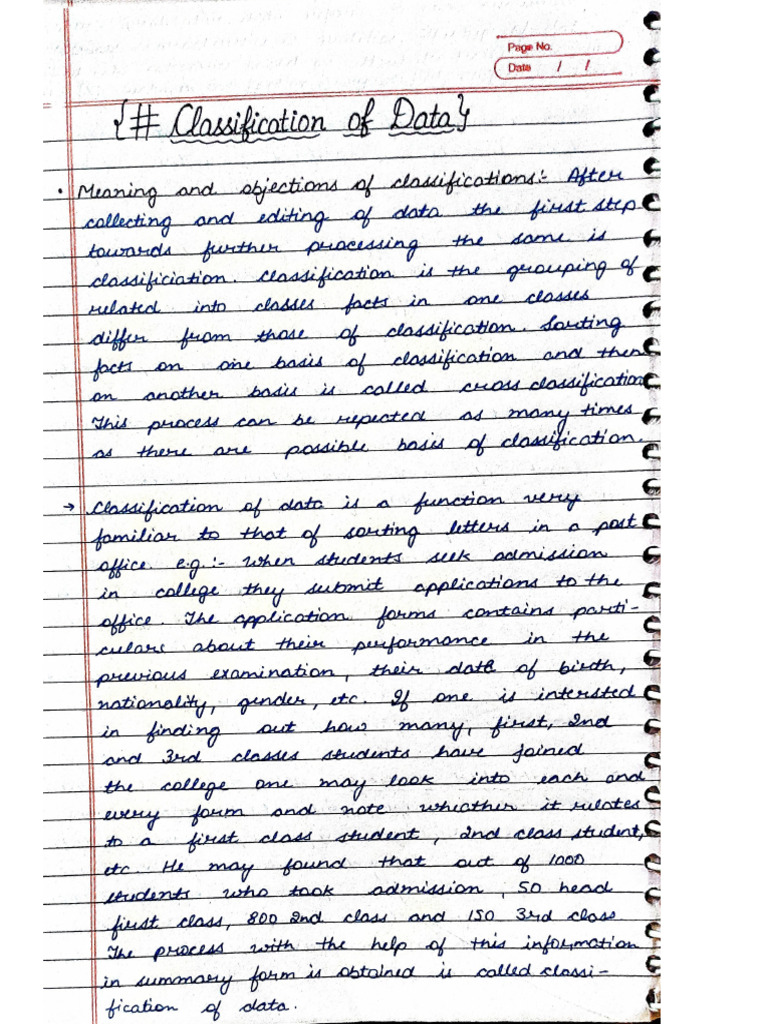 Page No.
Date / /
{# Classification of Data}
• Meaning and objections of classifications:- After
collecting and editing of data the first step
towards further processing the same is
classificiation. Classification is the grouping of
related into classes facts in one classes
differ from those of classification. Sorting
facts on one basis of classification and then
on another basis is called cross classification
This process can be repeated as many times
as there are possible basis of classification.
→ Classification of data is a function very
familiar to that of sorting letters in a post
office. e.g:- When students seek admission
in college they submit applications to the
office. The application forms contains parti-
culars about their performance in the
previous examination, their date of birth,
nationality, gender, etc. If one is intersted
in finding out how many, first, 2nd
and 3rd classes students have joined
the college one may look into each and
every form and note wheather it relates
to a first class student, 2nd class student,
etc. He may found that out of 1000
students who took admission, 50 head
first class, 800 2nd class and 150 3rd class
The process with the help of this information
in summary form is obtained is called classi-
fication of data.